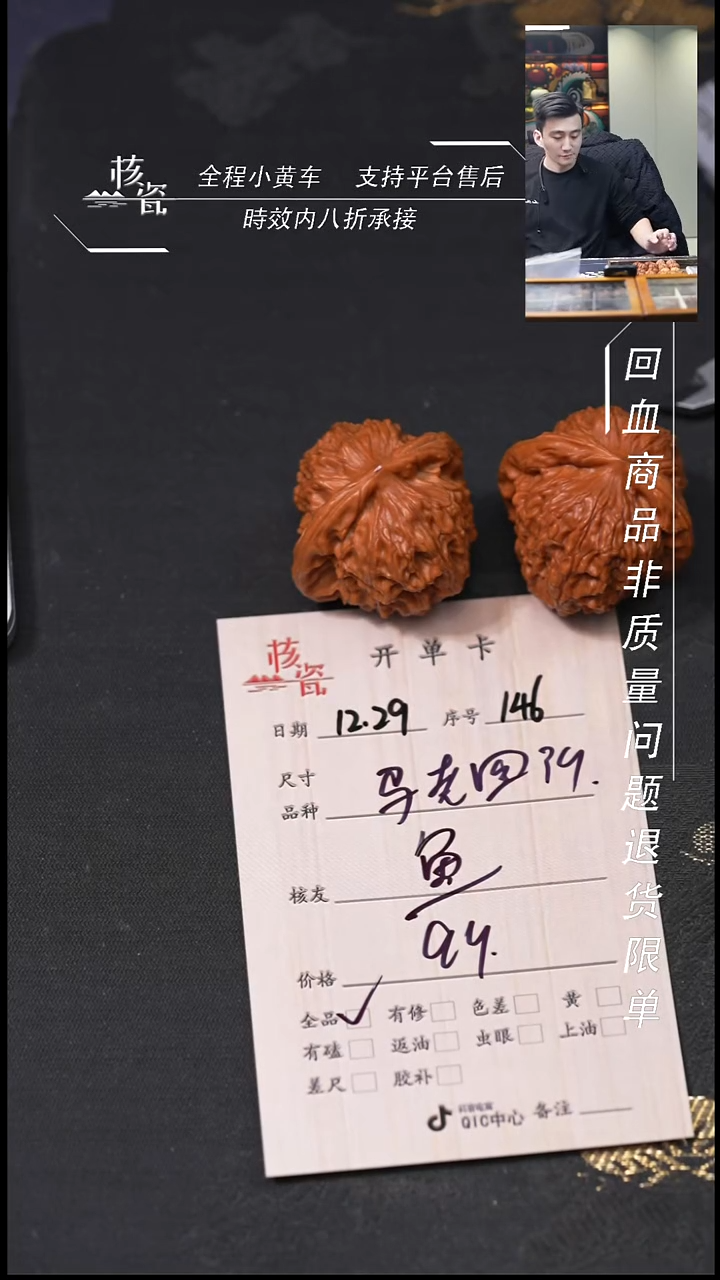 核瓷
全程小黄车 支持平台售后
時效内八折承接
回血商品非质量问题退货限单
核瓷 开单卡
日期 12.29 序号 146
尺寸
品种
核友 鱼
价格
全品 有修 色差 黄
有磕 返油 虫眼 上油
差尺 胶补
QIC中心 备注